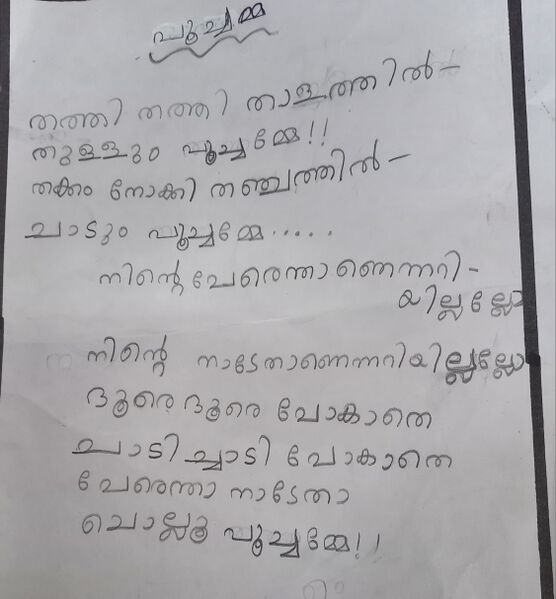 പൂച്ചമ്മ
തത്തി തത്തി താളത്തിൽ-
തുള്ളും പൂച്ചമ്മേ!!
തക്കം നോക്കി തഞ്ചത്തിൽ-
ചാടും പൂച്ചമ്മേ.....
നിന്റെ പേരെന്താണെന്നറി-
യില്ലല്ലോ
നിന്റെ നാടേതാണെന്നറിയില്ലല്ലോ
ദൂരെ ദൂരെ പോകാതെ
ചാടിച്ചാടി പോകാതെ
പേരെന്താ നാടേതാ
ചൊല്ലൂ പൂച്ചമ്മേ!!